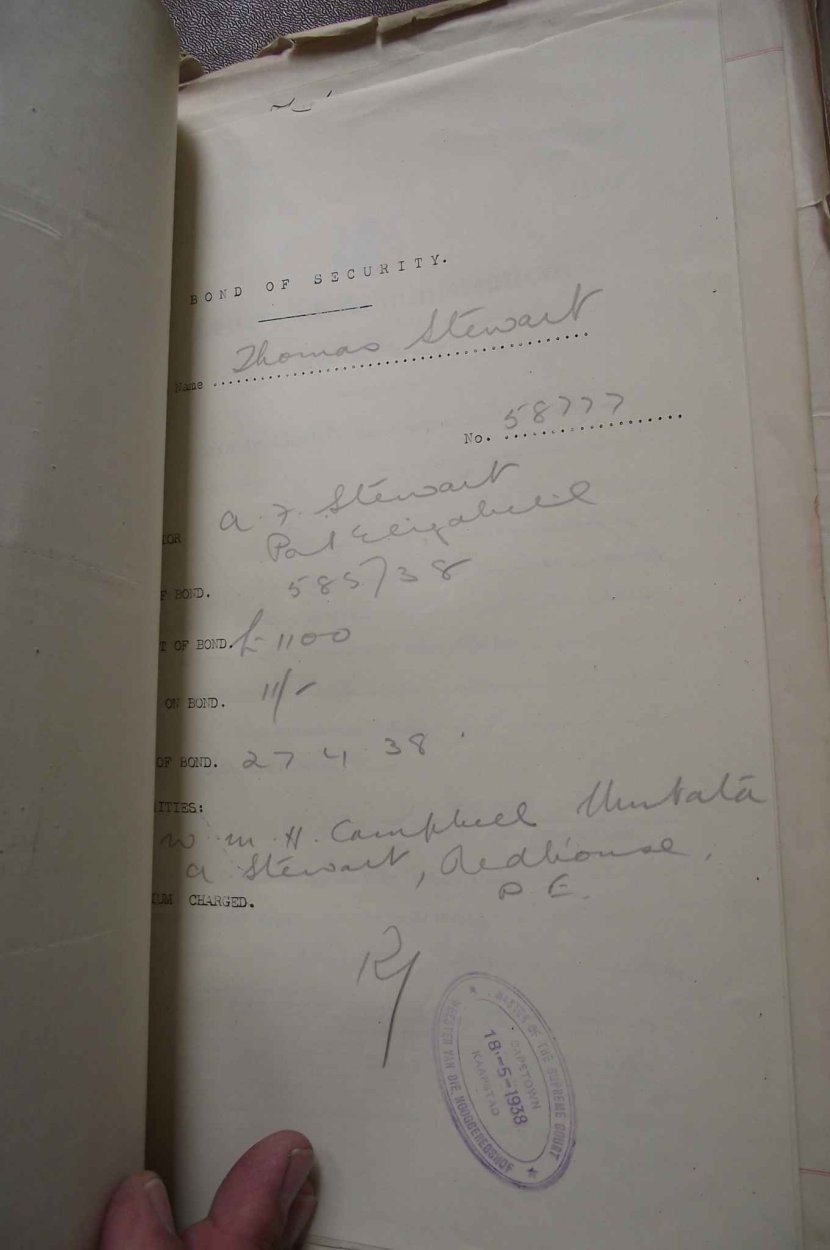 BOND OF SECURITY.
Name Thomas Stewart
No. 58777
OR A. F. Stewart
Port Elizabeth
F BOND. 585/38
T OF BOND. £ 1100
ON BOND. 11/-
OF BOND. 27 4 38
ITIES:
W. M. H. Campbell Umtata
A Stewart, Redhouse,
P. E.
UM CHARGED.
MASTER OF THE SUPREME COURT
CAPETOWN
18-5-1938
KAAPSTAD
MEESTER VAN DIE HOOGGEREGSHOF